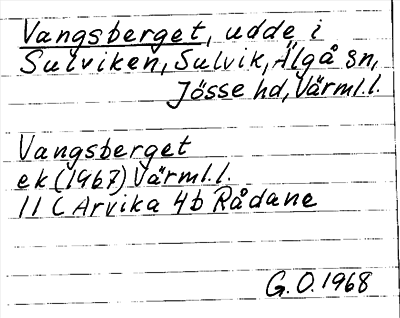 Vangsberget, udde i
Sulviken, Sulvik, Älgå sn,
Jösse hd, Värml.l.
Vangsberget
ek (1967) Värml.l.
11 C Arvika 4b Rådane
G.O. 1968